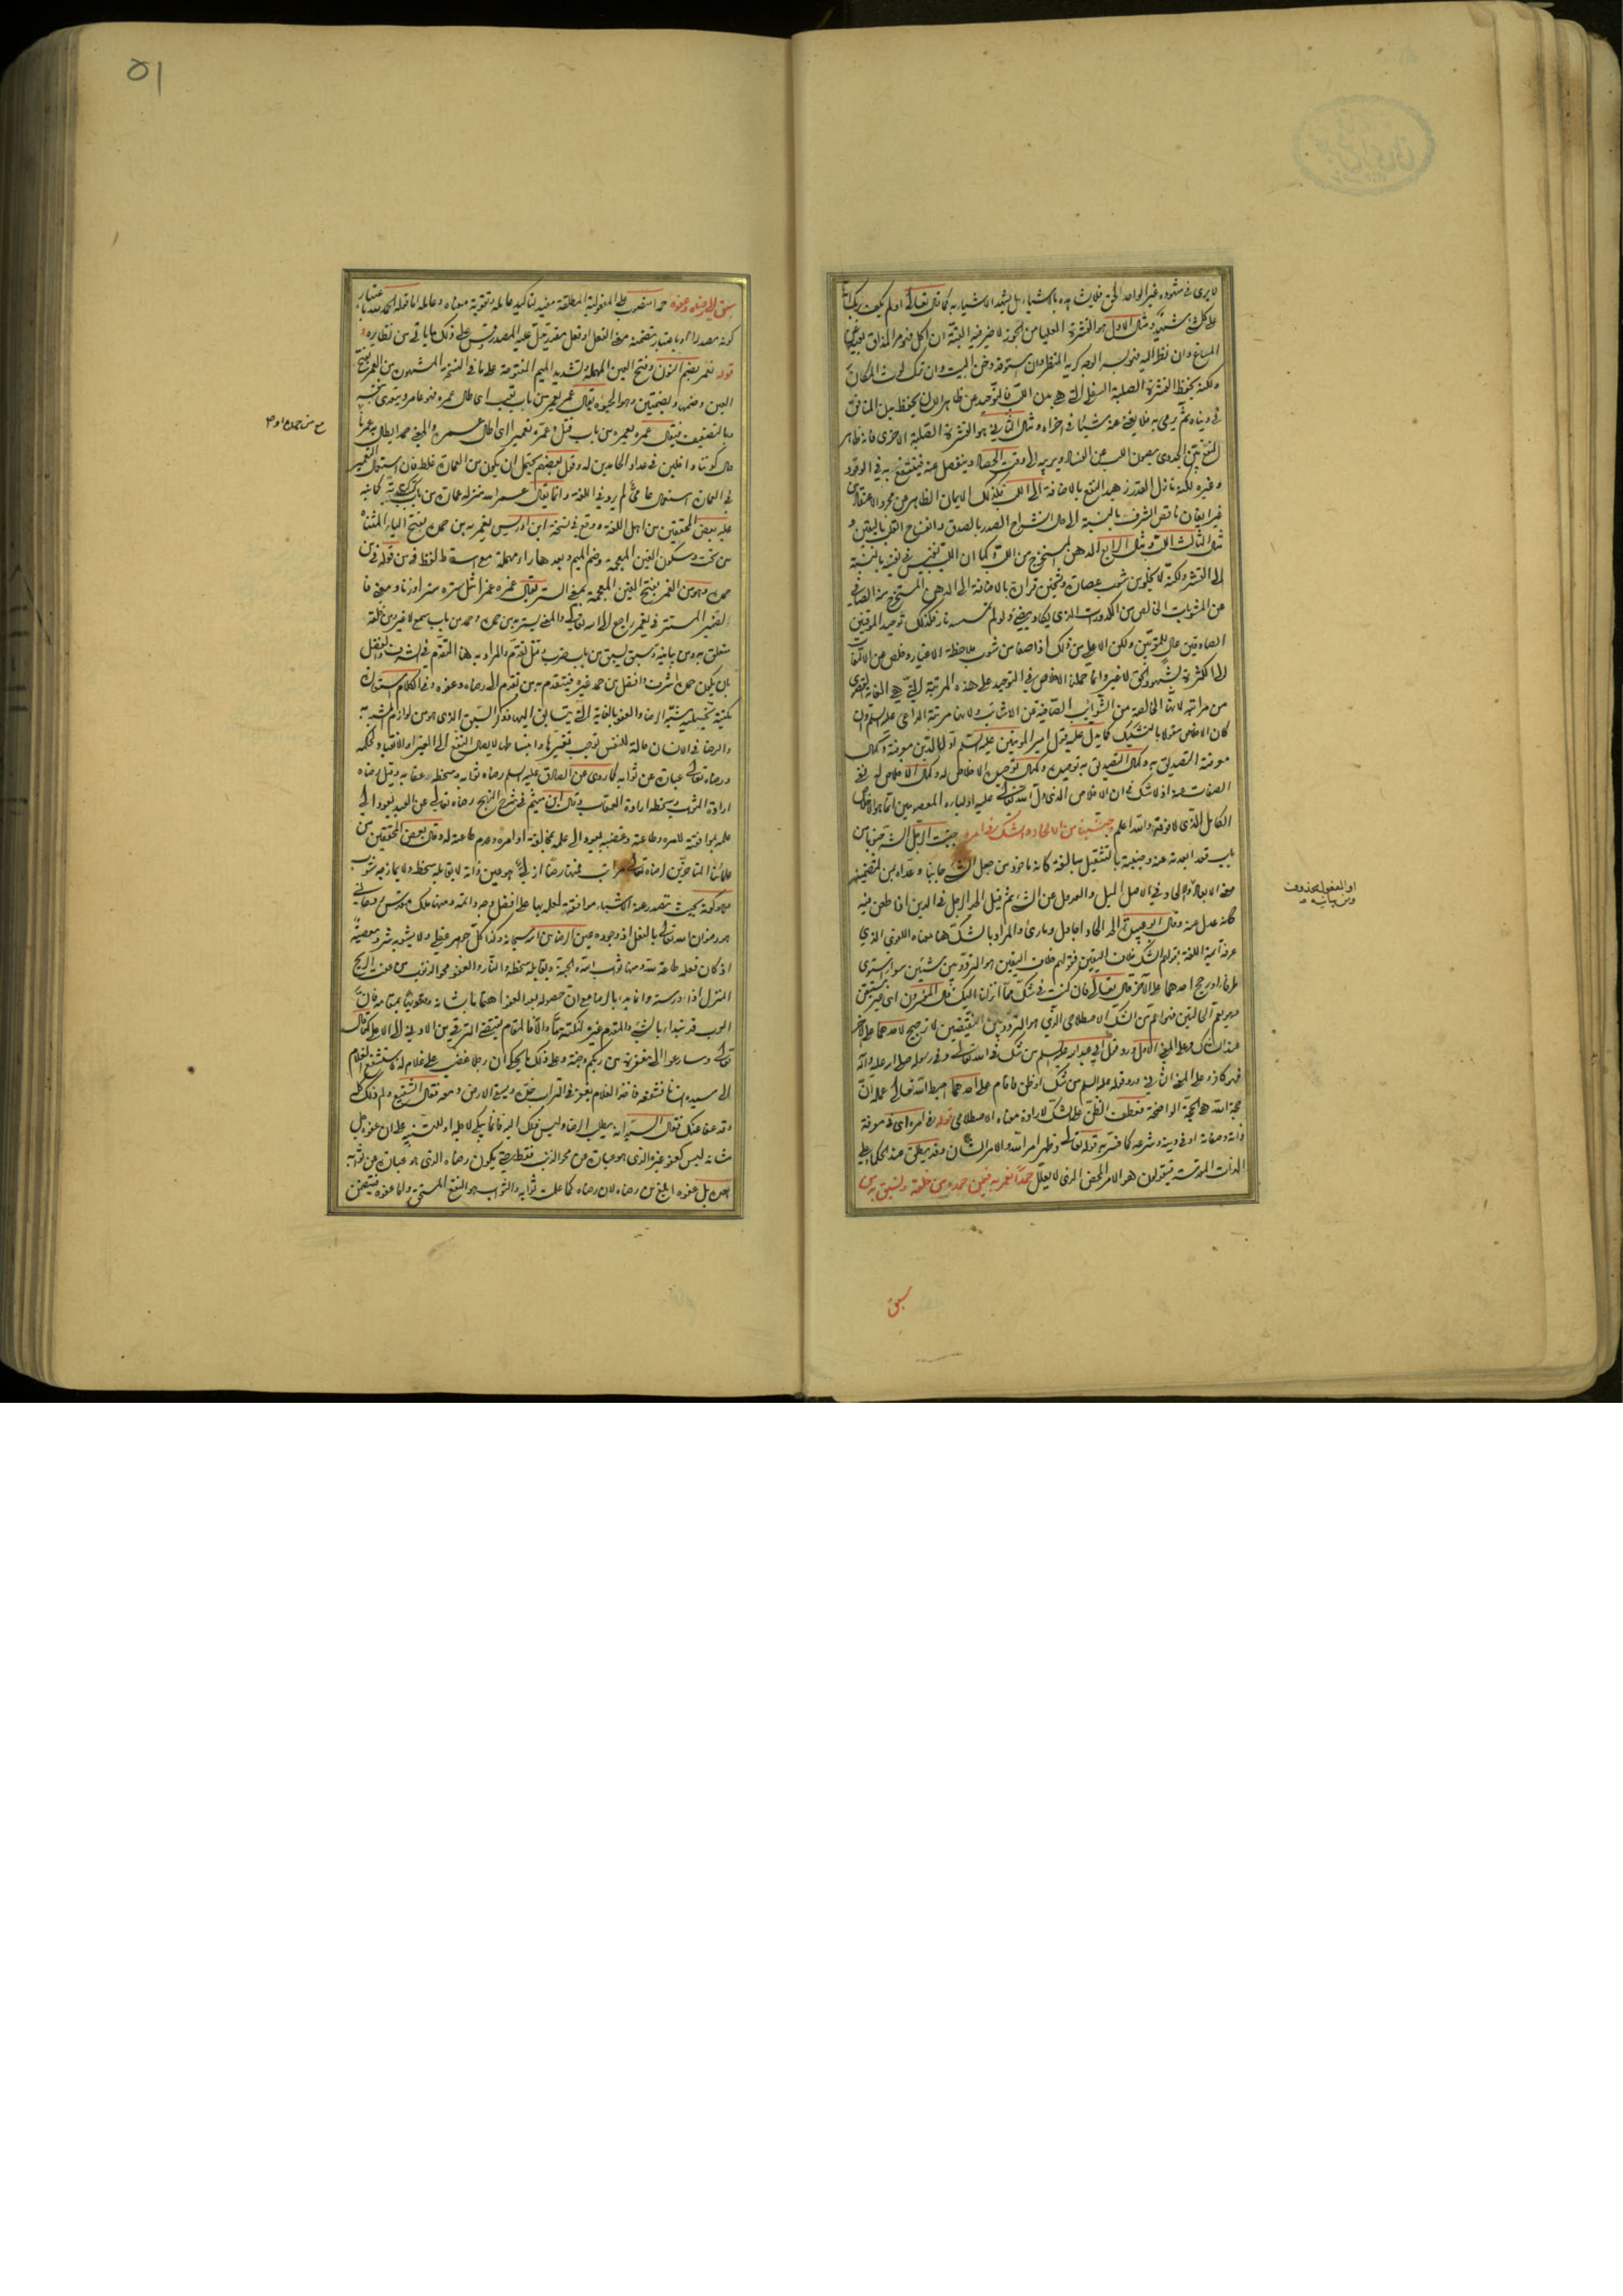 لا يرى في شهوده غير الواحد الحق فلا يشاهده بالأشياء بل يشهد الأشياء به كما قال تعالى اولم يكف بربك انه
على كل شيء شهيد ومثال الاول هو القشرة العليا من الجوز لا خير فيه البتة ان اكل فهو مر المذاق
وان نظر اليه فهو كريه المنظر وان
ولكنه يحفظ القشرة الصلبة السفلى التي هي بدن اللب
ثم يرمى به فلا يغني عنه شيئا في اخراه ومثال الثاني هو القشرة الصلبة الاخرى فانه ظاهر
النفع بيّن الجدوى يصون اللب عن الفساد ويربيه الى وقت الحصاد وينفصل عنه فينتفع به في الوقود
وغيره لكنه نازل القدر زهيد النفع بالاضافة الى اللب فكذلك الايمان الظاهر عن مجرد الاعتقاد من
غير ايقان ناقص الشرف بالنسبة الى حال انشراح الصدر بالصدق وانفساح القلب باليقين و
مثال الثالث اللب ومثال الرابع الدهن المستخرج من اللب وكما ان اللب نفيس في نفسه بالنسبة
الى القشر ولكنه لا يخلو من شوب عصارة بالاضافة الى الدهن المستخرج منه الصافي
عن المشوبات الخالص من الكدورات الذي يكاد يضيء ولو لم تمسسه نار فكذلك توحيد الموقنين
الصادقين
الى الكثرة لشهود الحق لا غير وانما حملنا الاخلاص في التوحيد على هذه المرتبة التي هي الغاية القصوى
من مراتبه لانها الخالصة من الشوائب الصافية عن
كان الاخلاص مقولا بالتشكيك كما يدل عليه قول امير المؤمنين عليه السلام اول الدين معرفته وكمال
معرفته التصديق به وكمال التصديق به توحيده وكمال توحيده الاخلاص له وكمال الاخلاص له نفي
الصفات عنه اذ لا شك في ان الاخلاص الذي دل الله تعالى عليه اولياءه المعصومين انما هو الاخلاص
الكامل الذي لا فوقه والله اعلم وجنبنا من الالحاد والشك في امره جنبت الرجل الشر جنوبا من
باب قعد ابعدته عنه وجنبته بالتثقيل مبالغة كانه ماخوذ من جعل الشيء جانبا وعداه بمن لتضمينه
معنى الابعاد والالحاد في الاصل الميل والعدول عن الشيء ثم قيل الحد الرجل في الدين اذا طعن فيه
كانه عدل عنه وقال ابو عبيدة الحد الحادا جادل ومارى والمراد بالشك هنا معناه اللغوي الذي
عرفه ائمة اللغة بقولهم الشك خلاف اليقين فقولهم خلاف اليقين هو التردد بين شيئين سواء استوى
طرفاه او رجح احدهما على الآخر قال تعالى فان كنت في شك مما انزلنا اليك قال المفسرون اي غير مستيقن
وهو يعم الحالتين فهو اعم من الشك الاصطلاحي الذي هو التردد بين النقيضين لا ترجيح لاحدهما على الآخر
عند الشاك وعلى المعنى الاول ورد قول ابي عبد الله عليه السلام من شك في الله تعالى وفي رسوله صلى الله عليه وآله
فهو كافر وعلى المعنى الثاني ورد قوله عليه السلام من شك او ظن فاقام على احدهما احبط الله تعالى عمله ان
حجة الله هي الحجة الواضحة فعطف الظن على الشك لارادة معناه الاصطلاحي قوله في امره اي في معرفة
ذاته وصفاته او في دينه وشرعه كما فسر به قوله تعالى وظهر امر الله والامر الشان وقد يطلق عند الحكماء على
الذات المقدسة فيقولون هو الامر المحض الذي لا يعلل حمدا نعمر به فيمن حمده من خلقه ونسبق به من
سبق
او المفعول محذوف
ومن بيانيه
٥١
سبق الى رضاه وعفوه حمدا منصوب على المفعولية المطلقة مفيد لتاكيد عامله وتقوية معناه وعامله اما قوله الحمد لله باعتبار
كونه مصدرا او باعتبار تضمنه معنى الفعل او فعل مقدر يدل عليه المصدر وقس على ذلك ما ياتي من نظايره
قوله نعمر بضم النون وفتح العين المهملة وتشديد الميم المفتوحة على ما في النسخة المشهورة من العمر بفتح
العين وضمها وبضمتين وهو الحيوة يقال عمر يعمر من باب تعب اي طال عمره فهو عامر ويتعدى بنفسه
وبالتضعيف فيقال عمره يعمره من باب قتل وعمره تعميرا اي اطال عمره والمعنى حمدا يطال به عمرنا
حال كوننا داخلين في عداد الحامدين له وقول بعضهم يحتمل ان يكون من العمارة غلط فان استعمال التعمير
في العمارة استعمال عامي لم يرد في اللغة وانما يقال عمر الله منزله عمارة من باب كتب كما نبه
عليه بعض المحققين من اهل اللغة ووقع في نسخة ابن ادريس يغمر به من حمده بفتح الياء المثناة
من تحت وسكون الغين المعجمة وضم الميم وبعدها راء مهملة مع اسقاط لفظة في من قوله فيمن
حمده وهو من الغمر بفتح الغين المعجمة بمعنى الستر يقال غمره غمرا مثل ستره سترا وزنا ومعنى فا
لضمير المستتر في يغمر راجع الى الله تعالى والمعنى يستر به من حمده وحمد من باب سمع لا غير ومن خلقه
متعلق به ومن بيانية وسبق يسبق من باب ضرب ومثل تقدم والمراد به هنا التقدم في الشرف والفضل
بان يكون حمده اشرف وافضل من حمد غيره فيتقدم به من تقدم الى رضاه وعفوه وفي الكلام استعارة
مكنية تخييلية شبه الرضا والعفو بالغاية التي يتسابق اليها فذكر السبق الذي هو من لوازم المشبه به
والرضا في الانسان حالة للنفس توجب تغيرها وانبساطها لايصال النفع الى الغير او الانقياد لحكمه
ورضاه تعالى عبارة عن ثوابه كما روي عن الصادق عليه السلام رضاه ثوابه وسخطه عقابه وقيل رضاه
ارادة الثواب وسخطه ارادة العقاب وقال ابن ميثم في شرح النهج رضاه تعالى عن العبد يعود الى
علمه بموافقته لامره وطاعته وغضبه يعود الى علمه بمخالفة اوامره وعدم طاعته له وقال بعض المحققين من
علمائنا المتاخرين لرضاه تعالى مراتب فمنها رضا ازلي هو عين ذاته لا يقابله سخط ولا يمازجه شوب
وهو كونه بحيث تصدر عنه الاشياء موافقة لعلمه بها على افضل وجه واتمه ومنها ملك مقدس روحاني
هو رضوان الله تعالى بالفعل اذ وجوده عين الرضا من الله سبحانه وكذا كل جوهر عقلي ولا يشوبه شر ومعصية
اذ كان فعله طاعة لله ومنها ثواب الله والجنة ويقابله سخطة النار والعفو محو الذنب من عفت الريح
المنزل اذا درسته وانما بدأ بالرضا مع ان حصوله بعد العفو اهتماما بشانه وتعظيما لمقامه فان
العرب قد تبدأ بالشيء والمقدم غيره لنكتة ما والا فالمقام يقتضي الترقي من الادنى الى الاعلى كما قال
تعالى وسارعوا الى مغفرة من ربكم وجنة وعلى ذلك ما يحكى ان رجلا غضب على غلام له فاستشفع الغلام
الى سيده انسانا فشفعه فاخذ الغلام يعفر في التراب خده ويبكي الارض دموعه فقال الشفيع ولم ذلك كله
وقد عفا عنك فقال السيد انه يطلب الرضا وليس ذلك اليه فانما يبكي لاجله او للتنبيه على ان عفوه جل
شانه ليس كعفو غيره الذي هو عبارة عن محو الذنب فقط حتى يكون رضاه الذي هو عبارة عن ثوابه
بل عفوه ابلغ من رضاه لان رضاه كما علمت ثوابه والثواب هو النفع المستحق واما عفوه فيتضمن